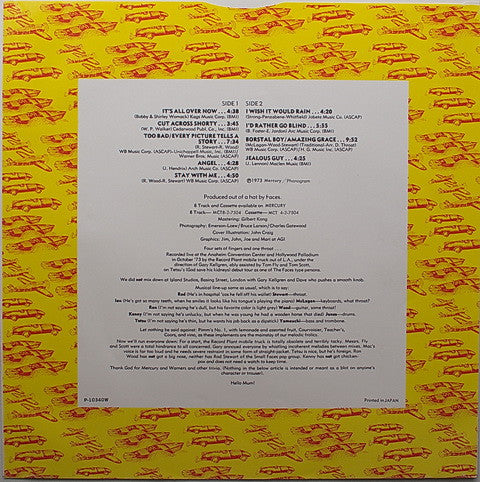 SIDE 1
IT'S ALL OVER NOW . . . 4:38
(Bobby & Shirley Womack) Kags Music Corp. (BMI)
CUT ACROSS SHORTY . . . 3:45
(W. P. Walker) Cedarwood Publ. Co., Inc. (BMI)
TOO BAD/EVERY PICTURE TELLS A
STORY . . . 7:34
(R. Stewart-R. Wood)
WB Music Corp. (ASCAP)-Unichappell Music, Inc. (BMI)/
Warner Bros. Music (ASCAP)
ANGEL . . . 4:28
(J. Hendrix) Arch Music Co. (ASCAP)
STAY WITH ME . . . 4:50
(R. Wood-R. Stewart) WB Music Corp. (ASCAP)
SIDE 2
I WISH IT WOULD RAIN . . . 4:20
(Strong-Penzabene-Whitfield) Jobete Music Co. (ASCAP)
I'D RATHER GO BLIND . . . 5:35
(B. Foster-E. Jordan) Arc Music Corp. (BMI)
BORSTAL BOY/AMAZING GRACE . . . 9:52
(McLagan-Wood-Stewart) (Traditional-Arr. D. Throat)
WB Music Corp. (ASCAP)/H. G. Music Inc. (ASCAP)
JEALOUS GUY . . . 4:25
(J. Lennon) Maclen Music (BMI)
℗ 1973 Mercury / Phonogram
Produced out of a hat by Faces.
8 Track and Cassette available on MERCURY
8 Track— MCT8-2-7504 Cassette— MCT 4-2-7504
Mastering: Gilbert Kong
Photography: Emerson-Loew/Bruce Larson/Charles Gatewood
Cover Illustration: John Craig
Graphics: Jim, John, Joe and Mort at AGI
Four sets of fingers and one throat . . .
Recorded live at the Anaheim Convention Center and Hollywood Palladium
in October 73 by the Record Plant mobile truck out of L.A., under the
direction of Gary Kellgren, ably assisted by Tom Fly and Tom Scott,
on Tetsu's (God save his kidneys) debut tour as one of The Faces type persons.
We did not mix down at Island Studios, Basing Street, London with Gary Kellgren and Dave who pushes a smooth knob.
Musical line-up same as usual, which is to say:
Rod (He's in hospital 'cos he fell off his wallet) Stewart—throat.
Ian (He's got so many teeth, when he smiles it looks like his tongue's playing the piano) McLagan—keyboards, what throat?
Ron (I'm not saying he's dull, but his favorite color is light grey) Wood—guitar, some throat
Kenny (I'm not saying he's unlucky, but when he was young he had a wooden horse that died) Jones—drums.
Tetsu (I'm not saying he's thin, but he wants his pin-back as a dipstick) Yamauchi—bass and trombone.
Let nothing be said against: Pimm's No. 1, with lemonade and assorted fruit, Courvoisier, Teacher's,
Coors, and wine, as these implements are the mainstay of our melodic fatigue.
Now we'll run everyone down: For a start, the Record Plant mobile truck is totally obsolete and terribly tacky. Messrs. Fly
and Scott were a total hindrance to all concerned. Gary annoyed everyone by whistling incoherent melodies between mixes. Mac's
voice is far too loud and he needs severe restraint in some form of straight-jacket. Tetsu is not, but he's foreign. Ron
Wood has not got a big nose, neither has Rod Stewart of the Small Faces pop group. Kenny has not got chicken
pox and does not need a watch to keep time.
Thank God for Mercury and Warners and other trivia. (Nothing in the below article is intended or meant as a blot on anyone's
character or trouser).
Hello Mum!
P-10340W
Printed in JAPAN